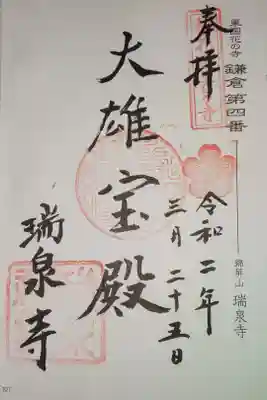 東国花の寺
鎌倉第四番
奉拝
令和二年
三月二十五日
大雄宝殿
瑞泉寺
錦屏山 瑞泉寺